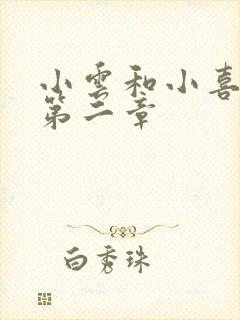 小雲和小喜
第二章
白秀珠